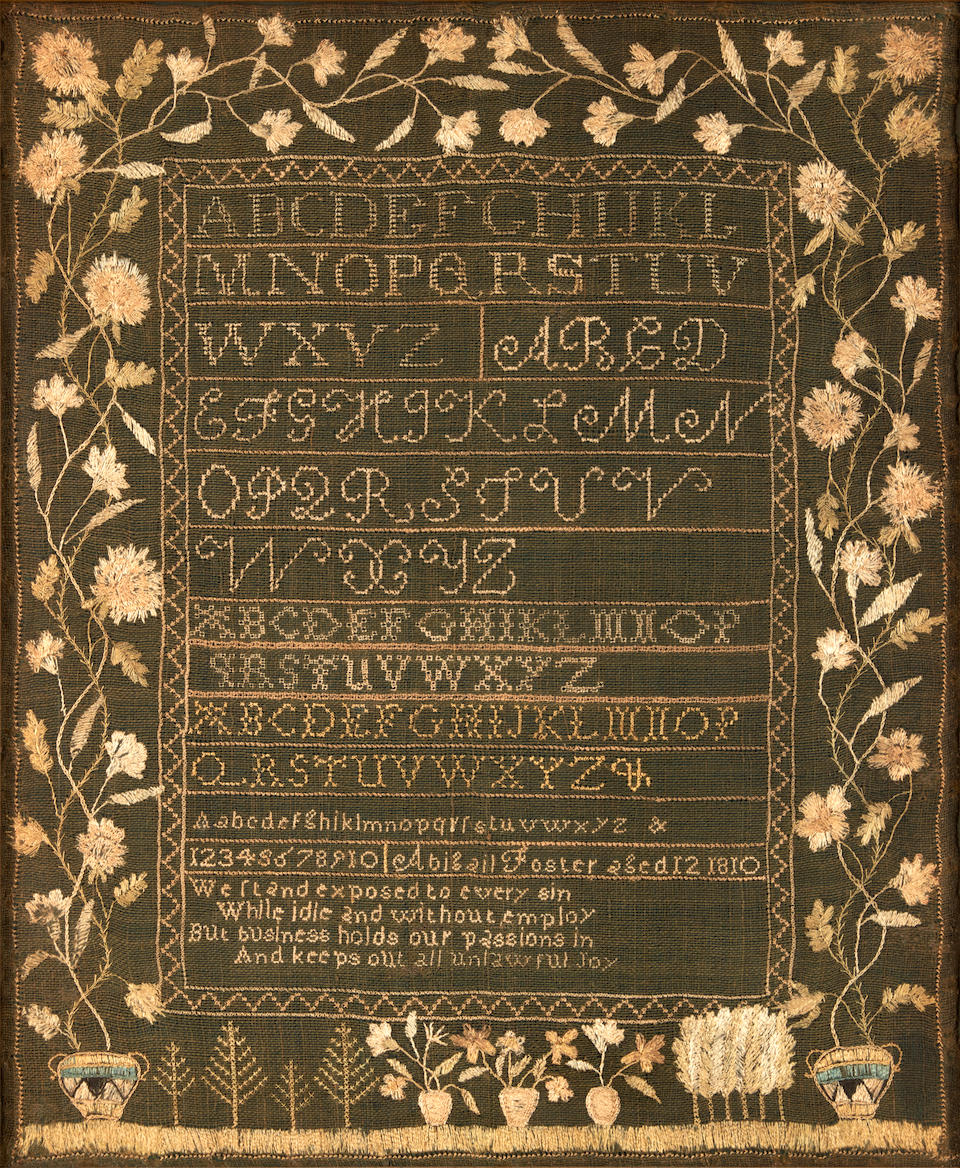 ABCDEFGHIJKL
MNOPQRSTUV
WXYZ ABCD
EFGHIKLMN
OPQRSTUV
WXYZ
ABCDEFGHIKLMNOP
QRSTUVWXYZ
ABCDEFGHIJKLMNOP
QRSTUVWXYZ&
Aabcdefghiklmnopqrſstuvwxyz &
12345678910 Abigail Foster aged 12 1810
We ſtand exposed to every sin
While idle and without employ
But business holds our passions in
And keeps out all unlawful Joy